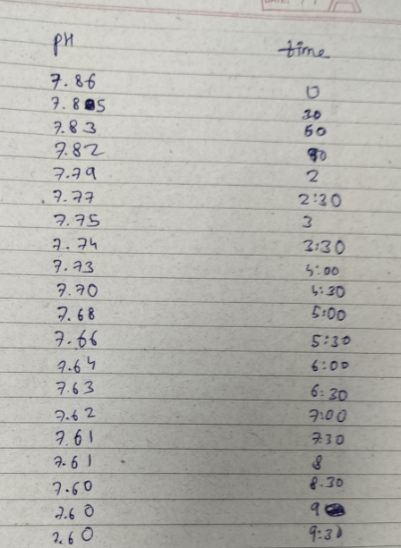 pH time
7.86 0
7.85 30
7.83 60
7.82 90
7.79 2
7.77 2:30
7.75 3
7.74 3:30
7.73 4:00
7.70 4:30
7.68 5:00
7.66 5:30
7.64 6:00
7.63 6:30
7.62 7:00
7.61 730
7.61 8
7.60 8.30
7.60 9
7.60 9:30